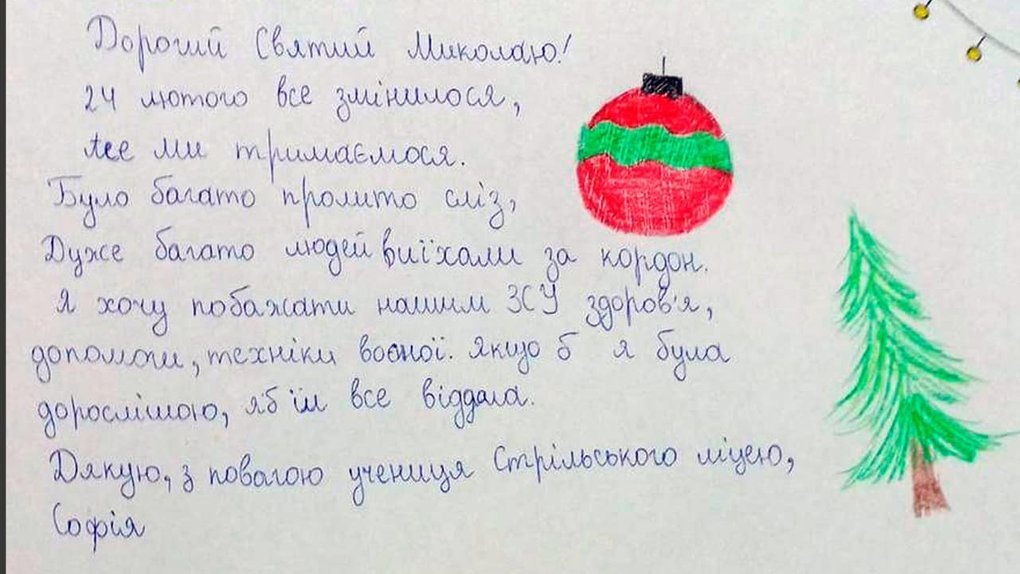 Дорогий Святий Миколаю!
24 лютого все змінилося,
Але ми тримаємося.
Було багато пролито сліз,
Дуже багато людей виїхали за кордон.
Я хочу побажати нашим ЗСУ здоров'я,
допомоги, техніки воєної. якщо б я була
дорослішою, я б їм все віддала.
Дякую, з повагою учениця Стрільського ліцею,
Софія